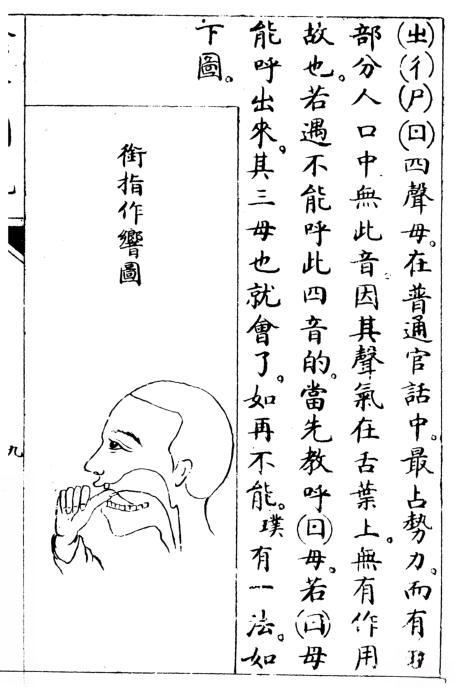 (ㄓ)(ㄔ)(ㄕ)(ㄖ)四聲母。在普通官話中。最占勢力。而有
部分人口中無此音因其聲氣在舌葉上。無有作用
故也。若遇不能呼此四音的。當先教呼(ㄖ)母。若(ㄖ)母
能呼出來。其三母也就會了。如再不能。璞有一法。如
下圖。
銜指作響圖
九